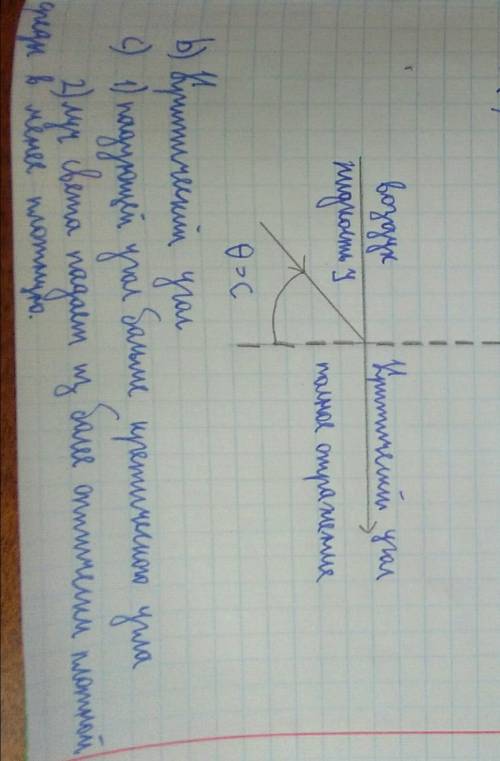 воздух
жидкость У
Критический угол
полное отражение
θ = C
b) Критический угол
c) 1) падующей угол больше кретического угла
2) луч света падает из более оптическим плотной
среды в менее плотную.